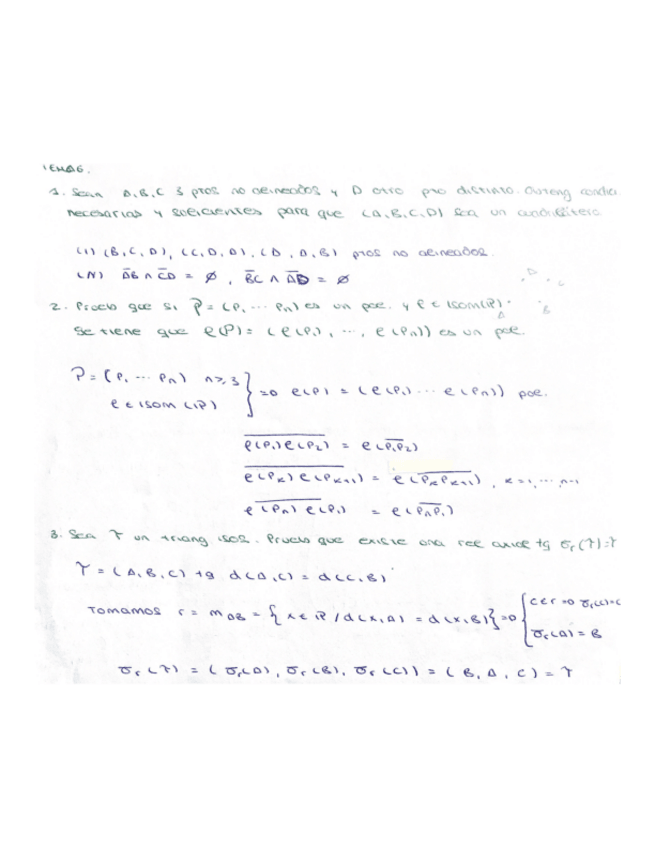 TEMA 6.
1. Sean A, B, C 3 ptos no alineados y D otro pto distinto. Obteng condic.
necesarias y suficientes para que (A, B, C, D) sea un cuadrilátero.
(1) (B, C, D), (C, D, A), (D, A, B) ptos no alineados.
A̅B̅ ∩ C̅D̅ = Ø, B̅C̅ ∩ A̅D̅ = Ø
D C
A B
2. Prueba que si P = (P₁ ... Pn) es un pol. y φ ∈ Isom(P).
Se tiene que φ(P) = (φ(P₁), ..., φ(Pn)) es un pol.
P = (P₁ ... Pn) n ≥ 3
φ ∈ ISOM (P) } => φ(P) = (φ(P₁) ... φ(Pn)) pol.
\overline{φ(P₁)φ(P₂)} = φ(\overline{P₁P₂})
\overline{φ(Pk)φ(Pk+1)} = φ(\overline{PkPk+1}), k=1, ..., n-1
\overline{φ(Pn)φ(P₁)} = φ(\overline{PnP₁})
3. Sea T un triang isos. Prueba que existe una rec tq σr(T)=T
T = (A, B, C) tq d(A, C) = d(C, B)
Tomamos r = mAB = { x ∈ P / d(x, A) = d(x, B)} => { C ∈ r => σr(C)=C
σr(A) = B
σr(T) = (σr(A), σr(B), σr(C)) = (B, A, C) = T